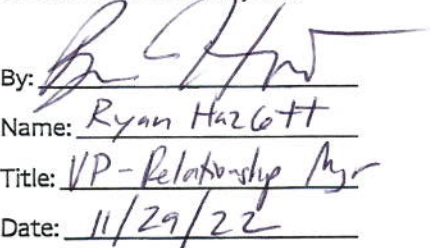 By:
Name: Ryan Hazlett
Title: VP - Relationship Mgr
Date: 11/29/22